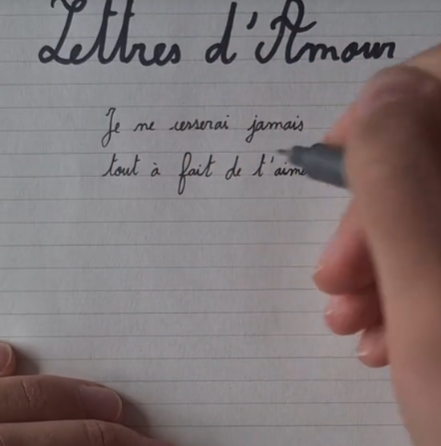 Lettres d'Amour
Je ne cesserai jamais
tout à fait de t'aime